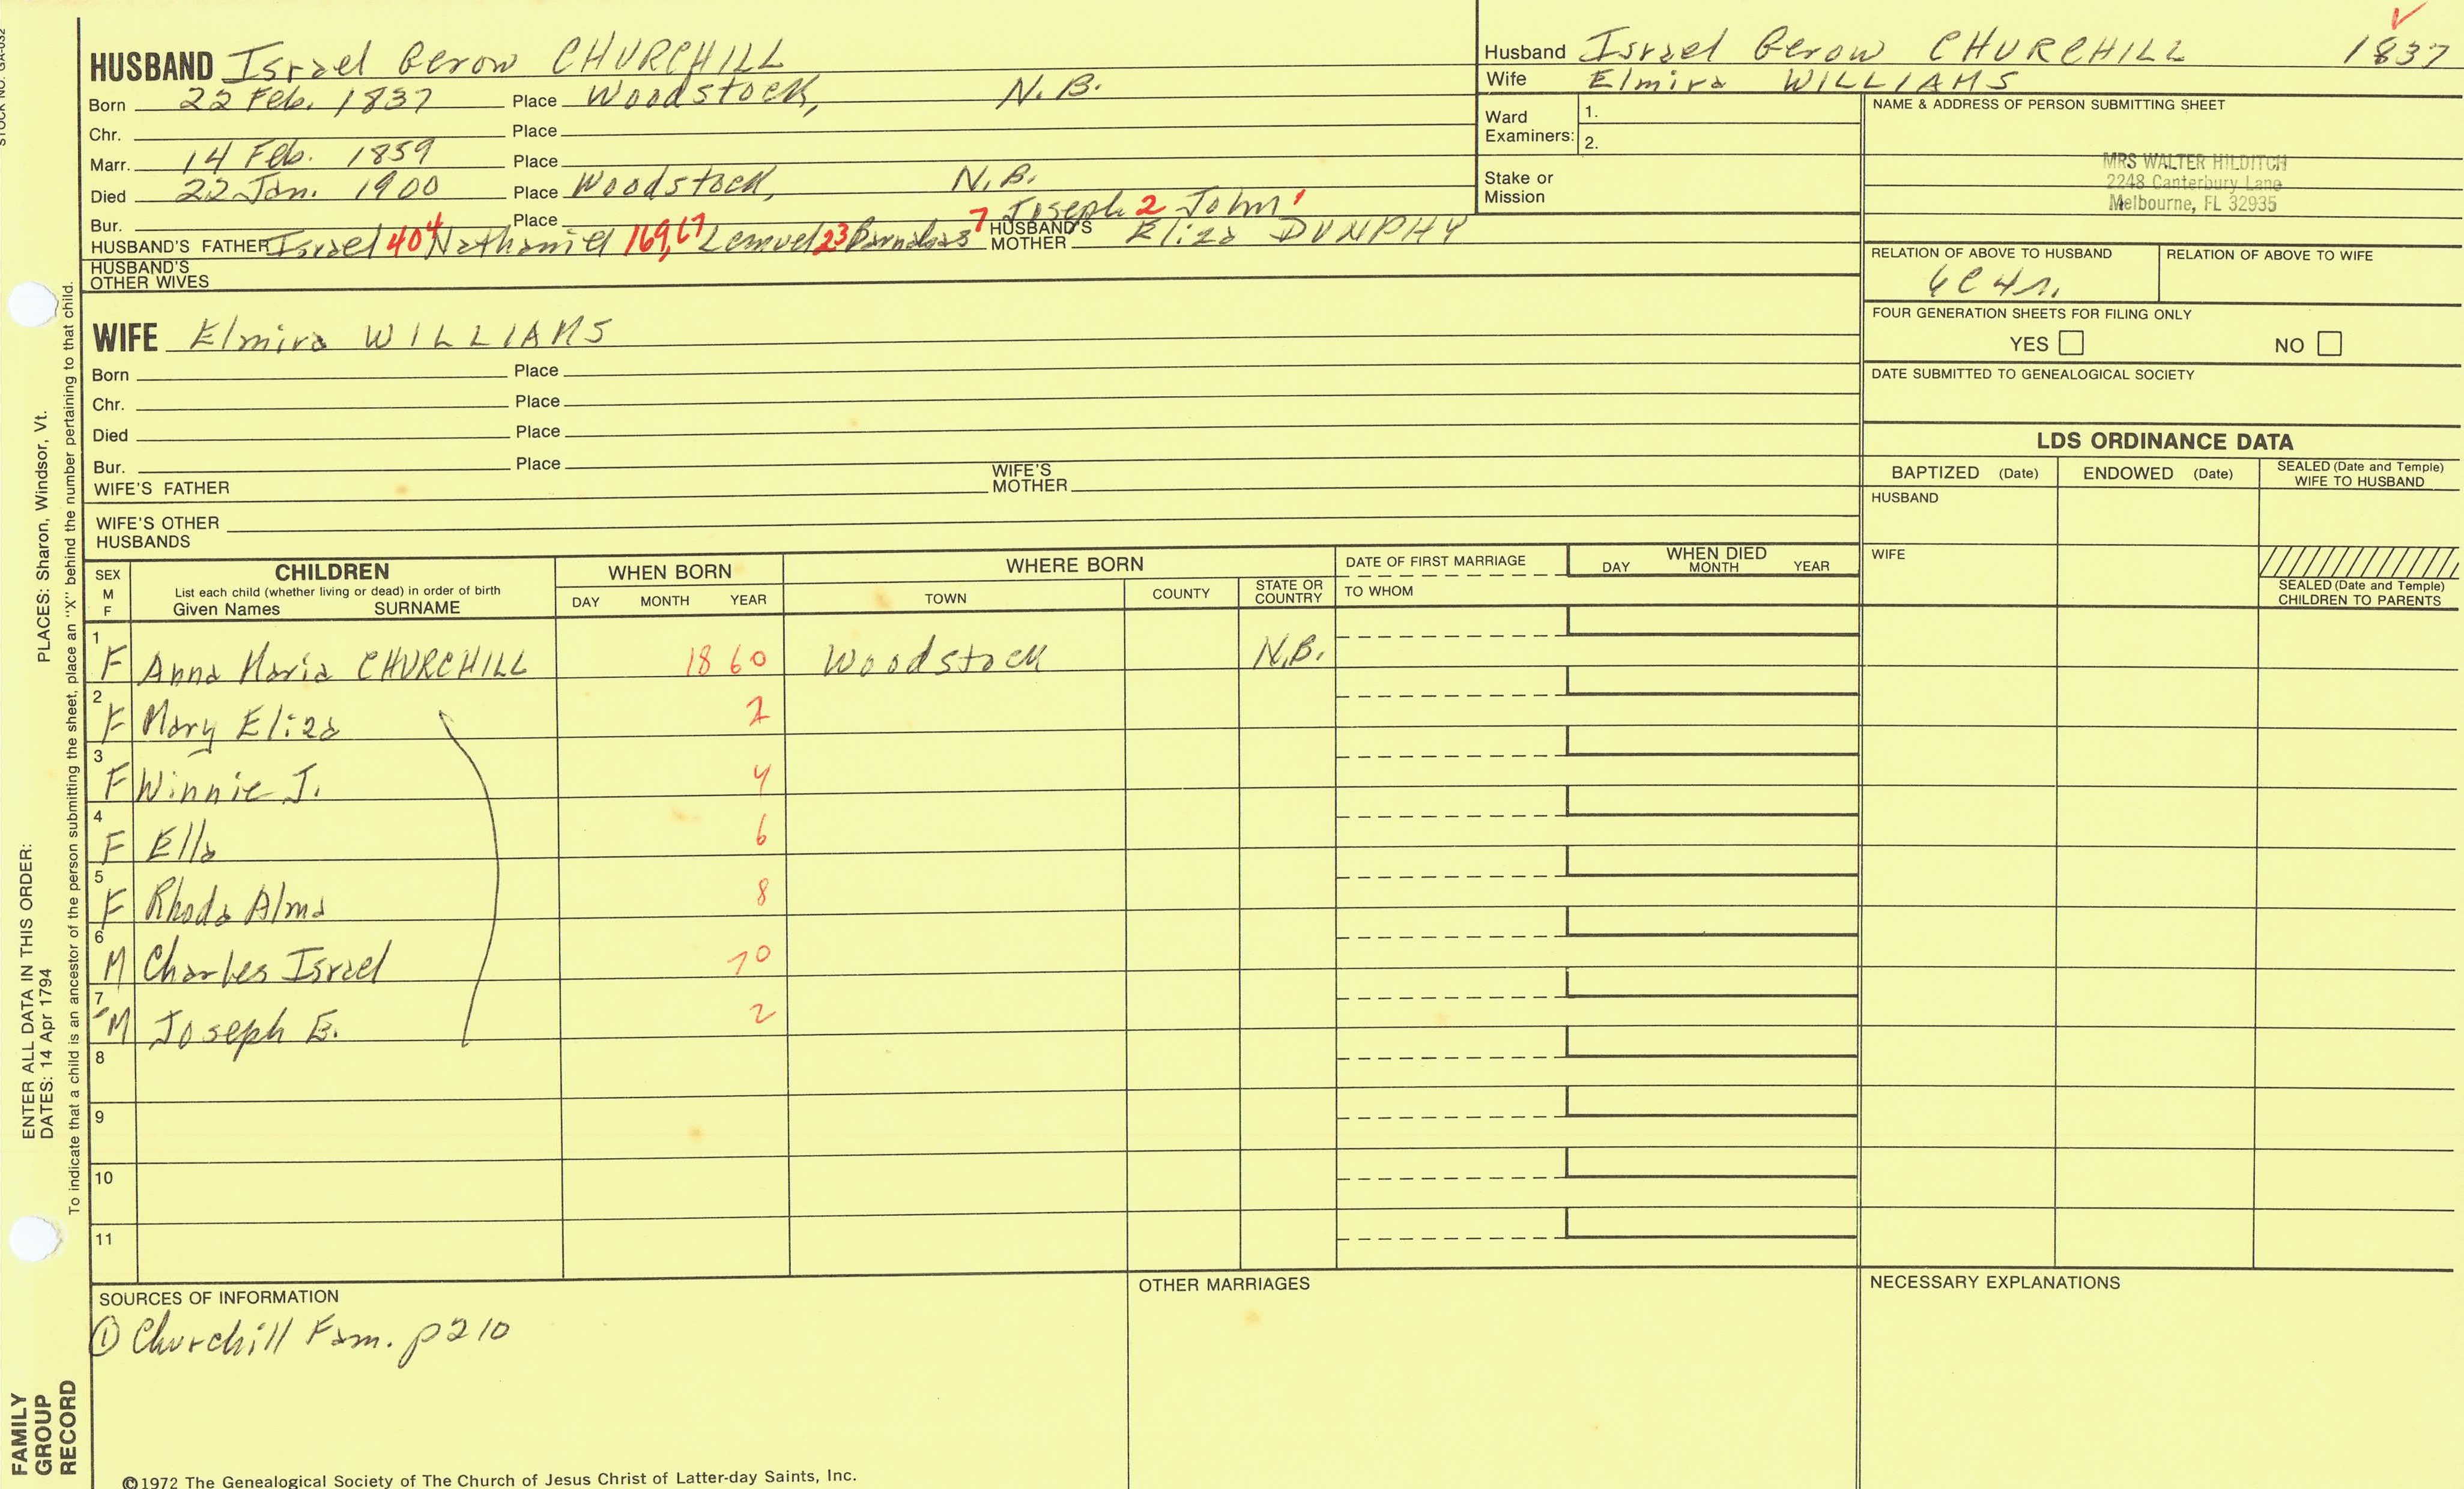 STOCK NO. GA-032
HUSBAND Israel Gerow CHURCHILL
Born 22 Feb. 1837 Place Woodstock, N.B.
Chr. Place
Marr. 14 Feb. 1859 Place
Died 22 Jan. 1900 Place Woodstock, N.B.
Bur. Place Joseph 2 John 1
HUSBAND'S FATHER Israel 404 Nathaniel 169,67 Lemuel 23 Barnabas 7 HUSBAND'S MOTHER Eliza DUNPHY
HUSBAND'S OTHER WIVES
WIFE Elmira WILLIAMS
Born Place
Chr. Place
Died Place
Bur. Place
WIFE'S FATHER WIFE'S MOTHER
WIFE'S OTHER HUSBANDS
Husband Israel Gerow CHURCHILL 1837
Wife Elmira WILLIAMS
Ward Examiners: 1.
2.
Stake or Mission
NAME & ADDRESS OF PERSON SUBMITTING SHEET
MRS WALTER HILDITCH
2248 Canterbury Lane
Melbourne, FL 32935
RELATION OF ABOVE TO HUSBAND RELATION OF ABOVE TO WIFE
FOUR GENERATION SHEETS FOR FILING ONLY
YES NO
DATE SUBMITTED TO GENEALOGICAL SOCIETY
LDS ORDINANCE DATA
BAPTIZED (Date) ENDOWED (Date) SEALED (Date and Temple) WIFE TO HUSBAND
HUSBAND
WIFE
SEALED (Date and Temple) CHILDREN TO PARENTS
SEX M F CHILDREN
List each child (whether living or dead) in order of birth
Given Names SURNAME
WHEN BORN
DAY MONTH YEAR
WHERE BORN
TOWN COUNTY STATE OR COUNTRY
DATE OF FIRST MARRIAGE
TO WHOM
WHEN DIED
DAY MONTH YEAR
1 F Anna Maria CHURCHILL 1860 Woodstock N.B.
2 F Mary Eliza 2
3 F Winnie J. 4
4 F Ella 6
5 F Rhoda Alma 8
6 M Charles Israel 70
7 M Joseph E. 2
8
9
10
11
SOURCES OF INFORMATION
① Churchill Fam. p210
OTHER MARRIAGES
NECESSARY EXPLANATIONS
©1972 The Genealogical Society of The Church of Jesus Christ of Latter-day Saints, Inc.
FAMILY
GROUP
RECORD
ENTER ALL DATA IN THIS ORDER:
DATES: 14 Apr 1794 PLACES: Sharon, Windsor, Vt.
To indicate that a child is an ancestor of the person submitting the sheet, place an "X" behind the number pertaining to that child.